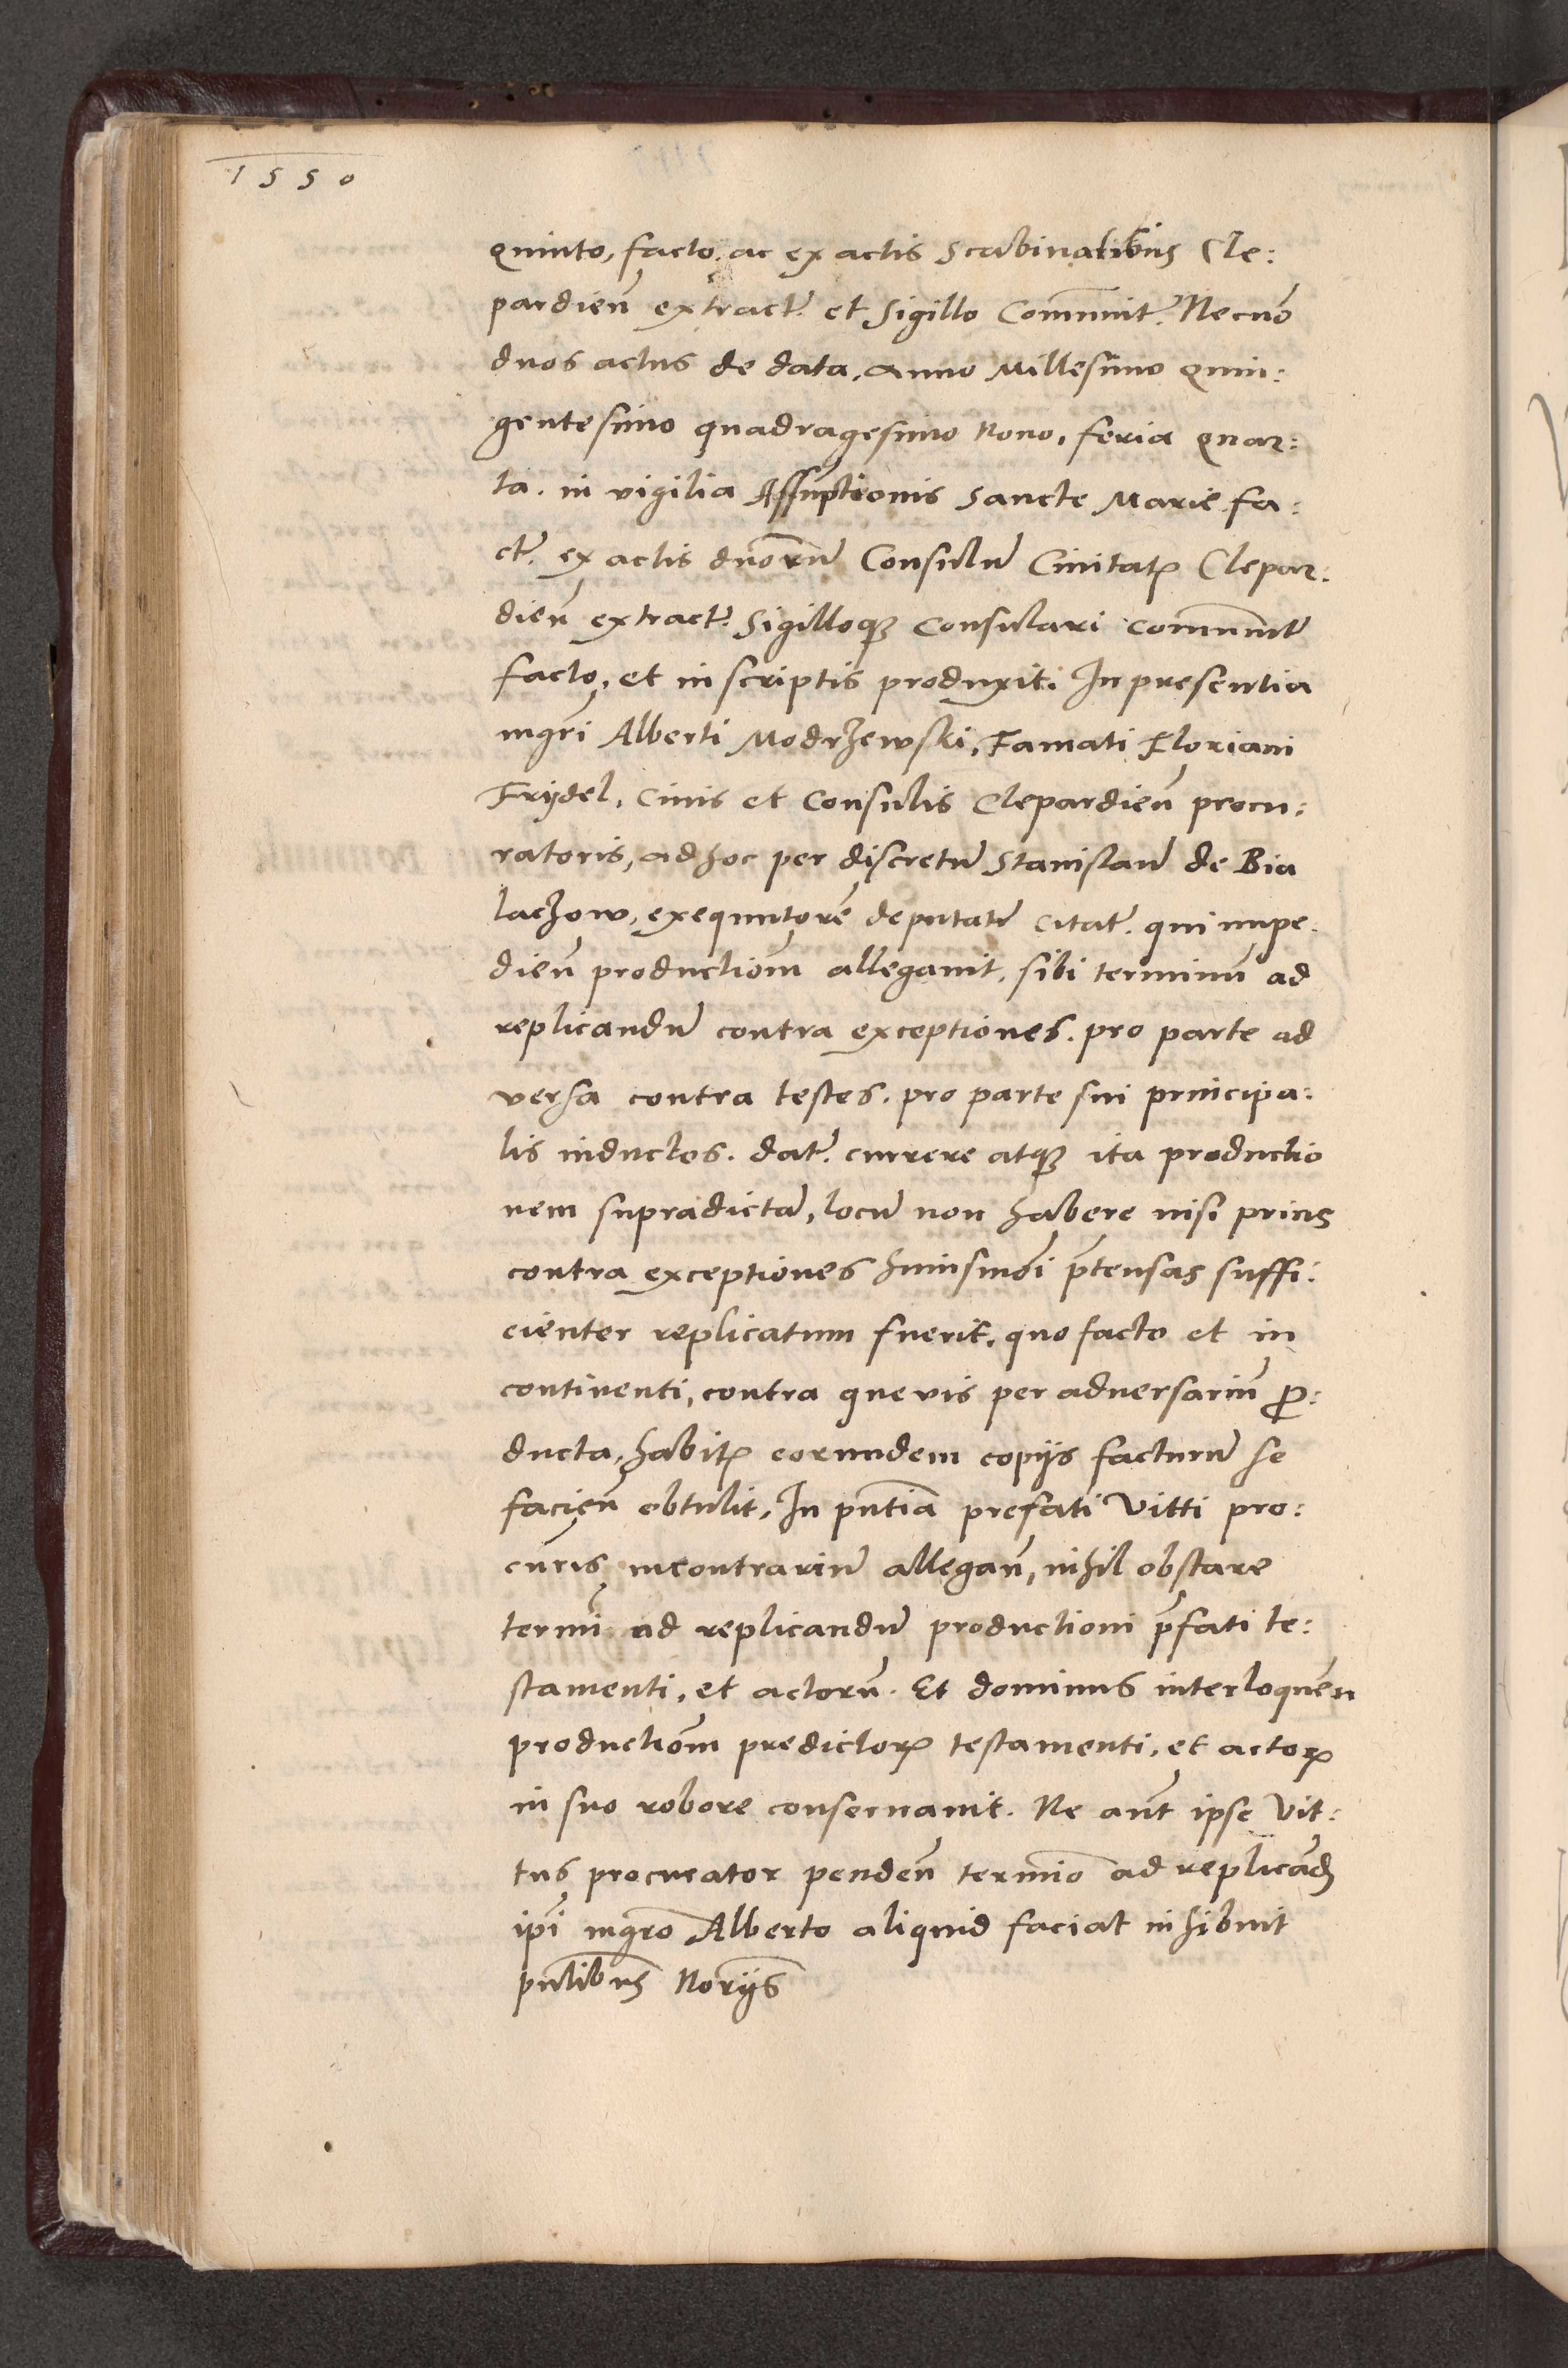 1550
quinto, facto. ac ex actis Scabinalibus Cle:
pardien̄ extract. et Sigillo Com̄unit. Necnō
duos actus de data. Anno Millesimo quin:
gentesimo quadragesimo Nono, feria quar:
ta. in vigilia Assūptionis Sancte Marie fa:
ct. ex actis duorū Consulū Ciuitatꝭ Clepar:
dien̄ extract. Sigilloqꝫ Consulari com̄unit
facto, et in scriptis produxit. In presentia
mgr̄i Alberti Modrzewski, Famati Floriani
Frydel, Ciuis et Consulis Clepardien̄ procu:
ratoris, ad hoc per discretū Stanislaū de Bia
laczow, exequutorē deputatū citat. qui impe:
dien̄ productiōm allegauit, sibi terminū ad
replicandū contra exceptiones. pro parte ad
versa contra testes. pro parte sui principa:
lis inductos. dat. currere atqꝫ ita productio
nem supradictā, locū non habere nisi prius
contra exceptiones huiusmōi p̄tensas suffi:
cienter replicatum fuerit, quo facto et in
continenti, contra quevis per aduersariū ꝓ:
ducta, habitꝭ eorundem copijs facturū se
facien̄ obtulit, In pn̄tia prefati Vitti pro:
curis, incontrariū allegan̄, nihil obstare
termī ad replicandū productioni p̄fati te:
stamenti, et actorū. Et dominus interloquēn
productiōm predictorꝝ testamenti, et actorꝝ
in suo robore conseruauit. Ne aūt ipse Vit:
tus procurator penden̄ termīo ad replicādꝫ
ip̄i mgr̄o Alberto aliquid faciat inhibuit
pn̄tibus Nor̄ijs